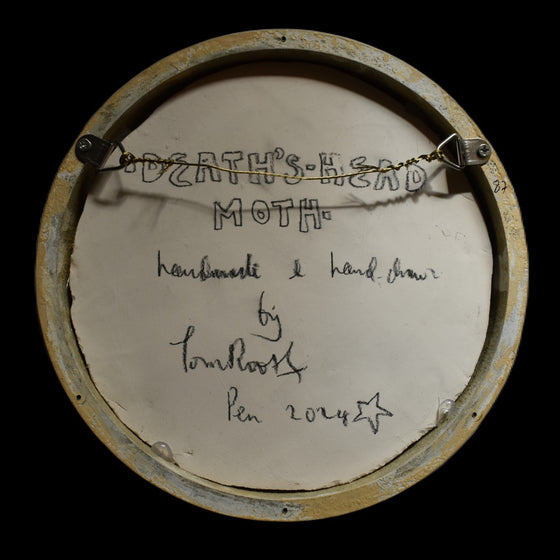 ·DEATH'S·HEAD
87
MOTH·
handmade & hand-drawn
by
Tom Rooth
Pen 2024